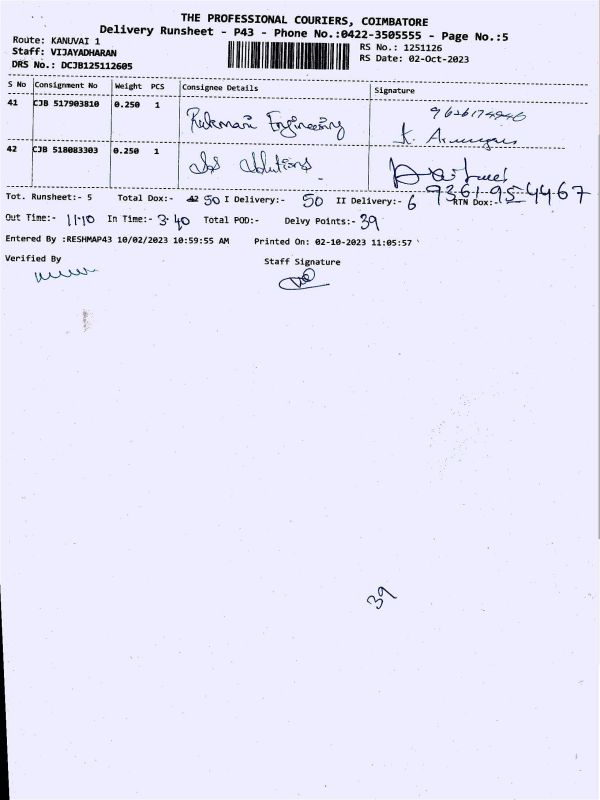 THE PROFESSIONAL COURIERS, COIMBATORE
Delivery Runsheet - P43 - Phone No.:0422-3505555 - Page No.:5
Route: KANUVAI 1
Staff: VIJAYADHARAN
DRS No.: DCJB125112605
RS No.: 1251126
RS Date: 02-Oct-2023
S No Consignment No Weight PCS Consignee Details Signature
41 CJB 517903810 0.250 1 Rukmani Engineering
42 CJB 518083303 0.250 1 Solutions
9361954467
Tot. Runsheet:- 5 Total Dox:- 42 50 I Delivery:- 50 II Delivery:- 6 RTN Dox:-
Out Time:- 11.10 In Time:- 3.40 Total POD:- Delvy Points:- 39
Entered By :RESHMAP43 10/02/2023 10:59:55 AM Printed On: 02-10-2023 11:05:57
Verified By Staff Signature
39